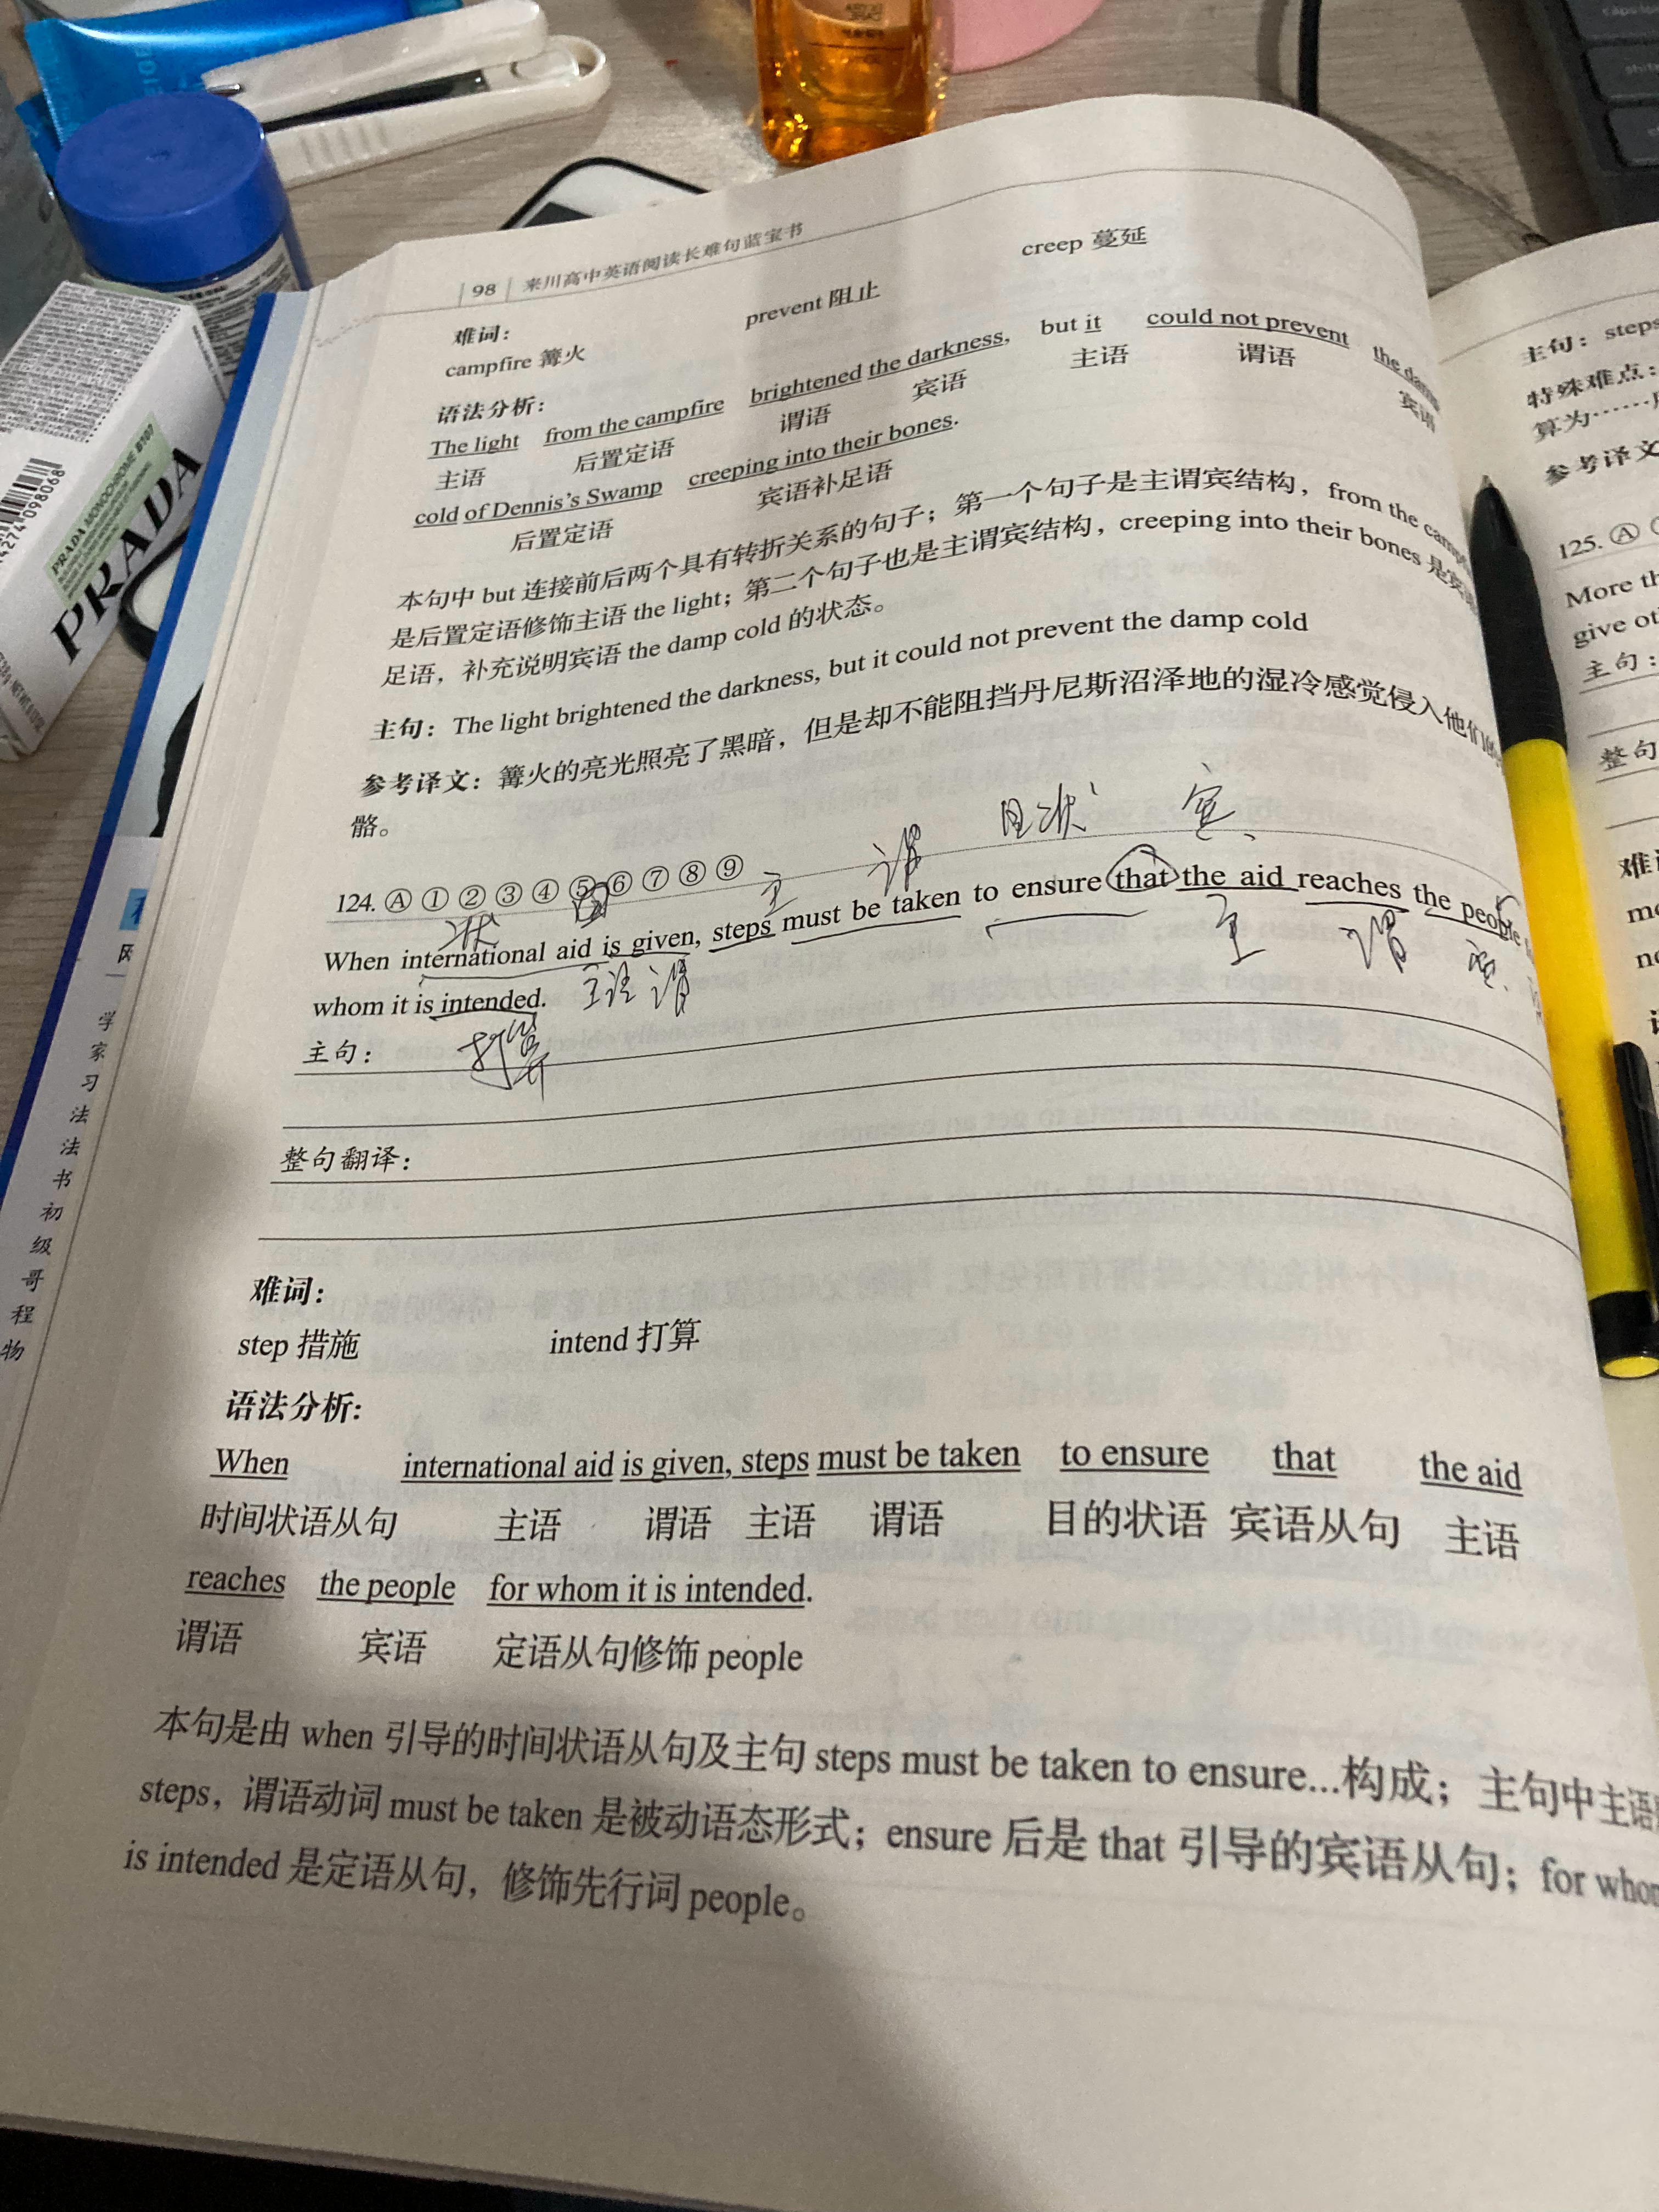 98 来川高中英语阅读长难句蓝宝书
难词：
campfire 篝火 prevent 阻止 creep 蔓延
语法分析：
The light from the campfire brightened the darkness, but it could not prevent the damp
主语 后置定语 谓语 宾语 主语 谓语 宾语
cold of Dennis's Swamp creeping into their bones.
后置定语 宾语补足语
本句中 but 连接前后两个具有转折关系的句子；第一个句子是主谓宾结构，from the
是后置定语修饰主语 the light；第二个句子也是主谓宾结构，creeping into their bones 是
足语，补充说明宾语 the damp cold 的状态。
主句：The light brightened the darkness, but it could not prevent the damp cold
参考译文：篝火的亮光照亮了黑暗，但是却不能阻挡丹尼斯沼泽地的湿冷感觉侵入他们
骼。
主 谓 目状 宾
124. Ⓐ ① ② ③ ④ ⑤ ⑥ ⑦ ⑧ ⑨
状
When international aid is given, steps must be taken to ensure that the aid reaches the people
主语 谓 主 谓 宾
whom it is intended.
主句：
打算
整句翻译：
难词：
step 措施 intend 打算
语法分析：
When international aid is given, steps must be taken to ensure that the aid
时间状语从句 主语 谓语 主语 谓语 目的状语 宾语从句 主语
reaches the people for whom it is intended.
谓语 宾语 定语从句修饰 people
本句是由 when 引导的时间状语从句及主句 steps must be taken to ensure...构成；主句中主语
steps，谓语动词 must be taken 是被动语态形式；ensure 后是 that 引导的宾语从句；for
is intended 是定语从句，修饰先行词 people。
主句：steps
特殊难点：
算为……
参考译文
125. Ⓐ
More
give
主句：
整句
PRADA
PRADA MONOCHROME B107
学
家
习
法
法
书
初
级
哥
程
物